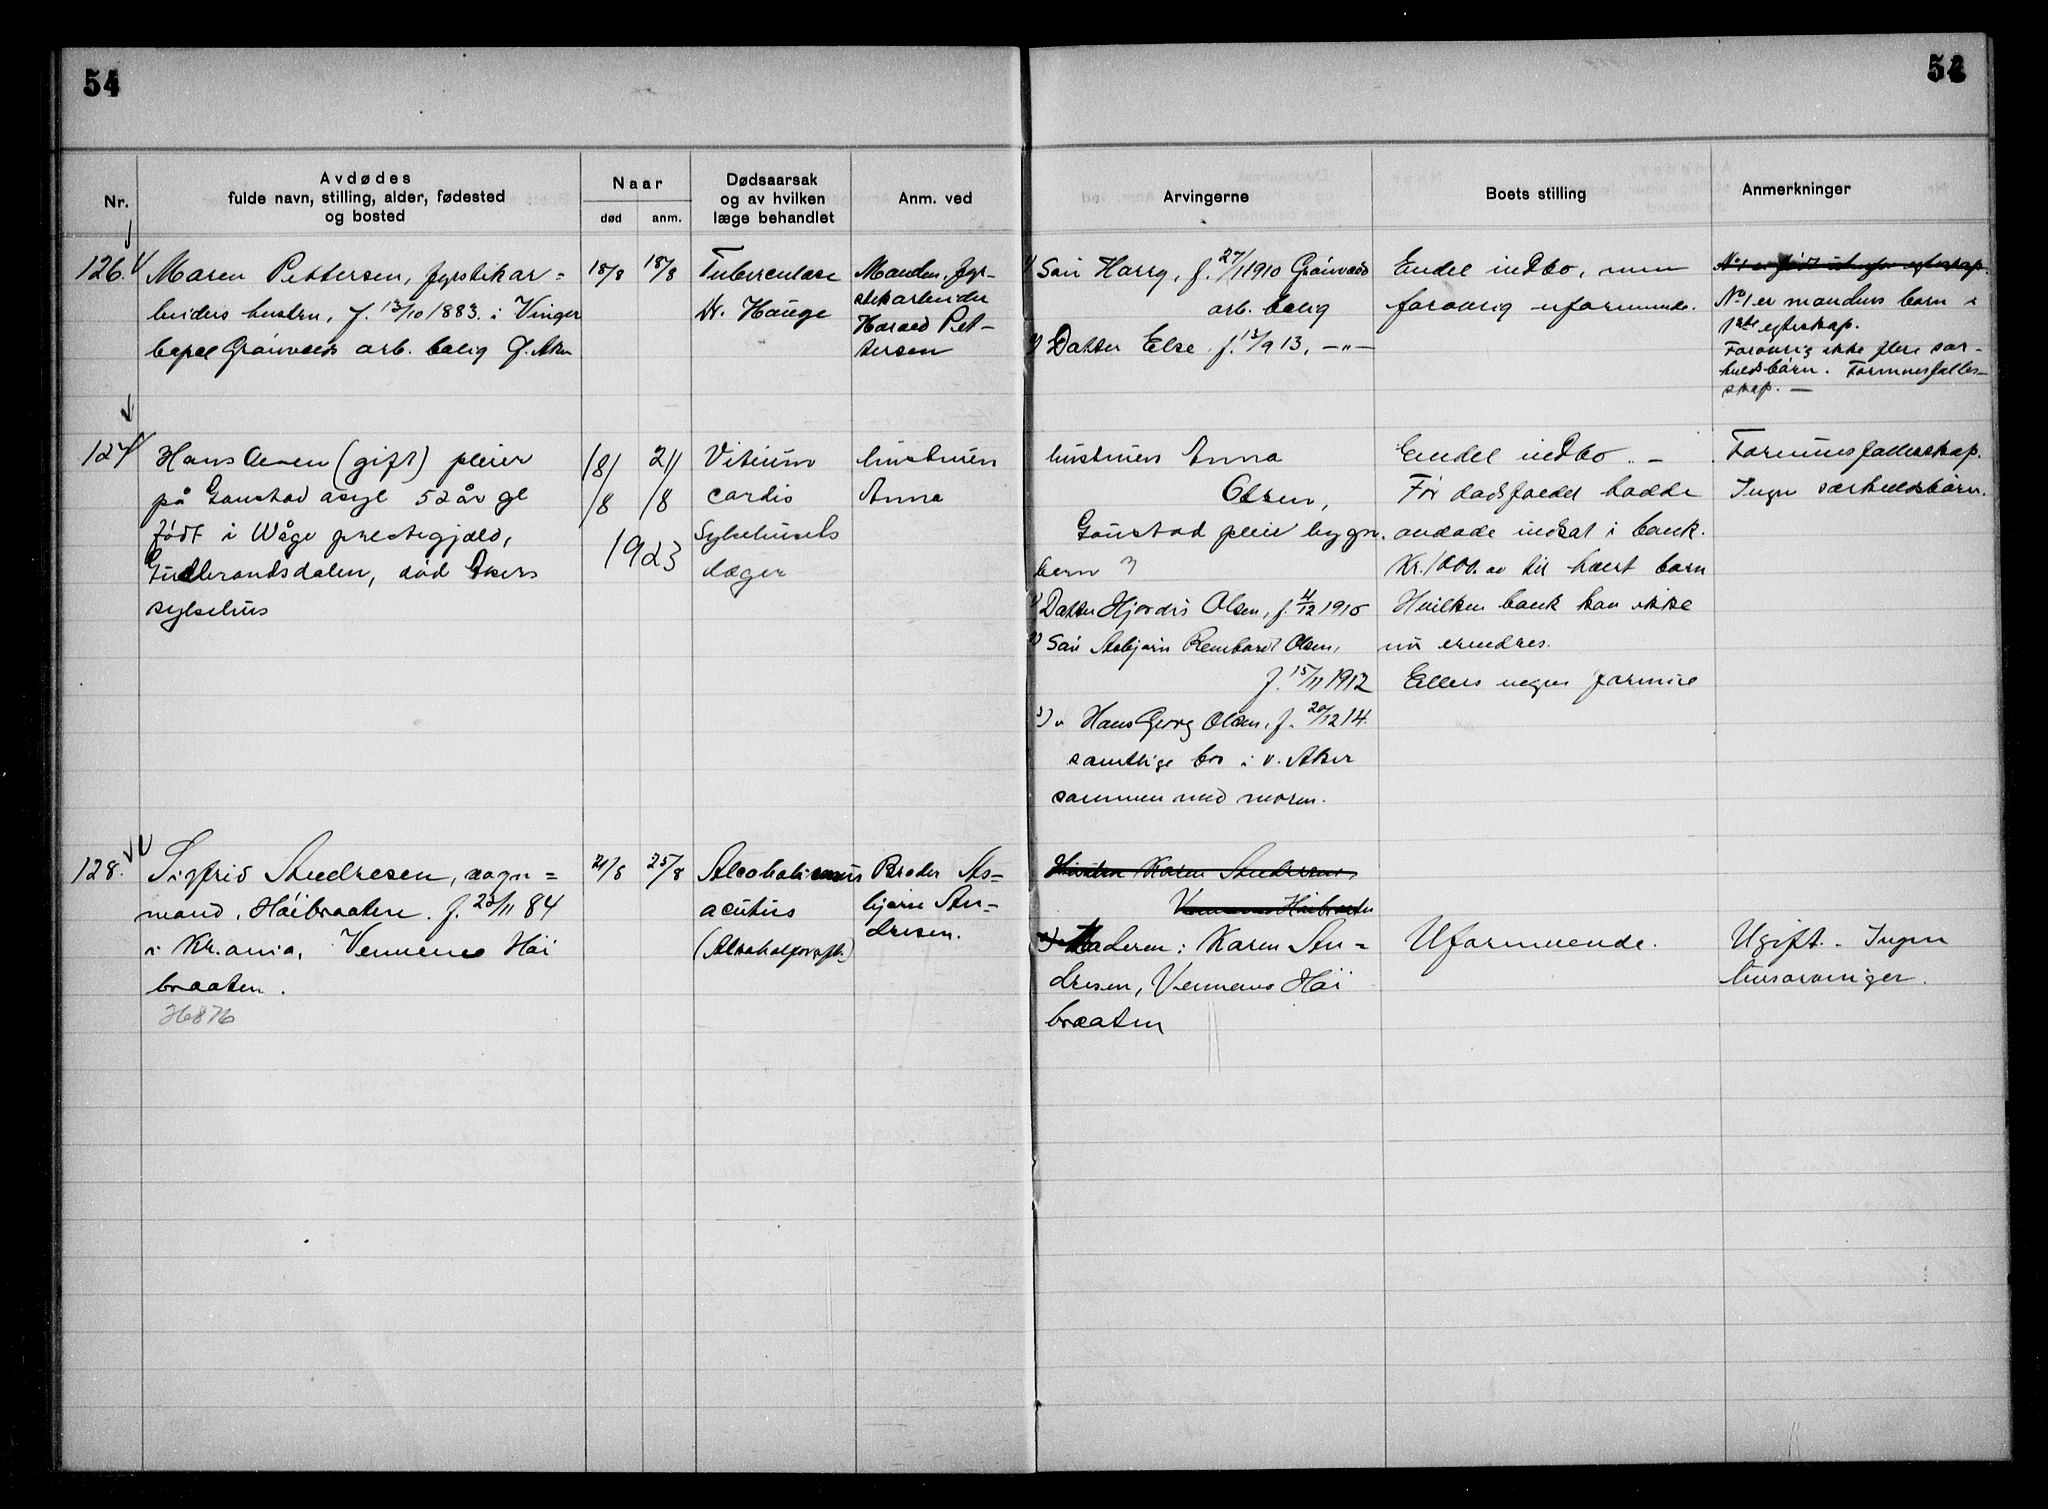 54
54
Nr.
Avdødes
fulde navn, stilling, alder, fødested
og bosted
Naar
død
anm.
Dødsaarsak
og av hvilken
læge behandlet
Anm. ved
Arvingerne
Boets stilling
Anmerkninger
126.
Maren Pettersen, fyrstikar=
beiders hustru, f. 13/10 1883. i Vinger
bopæl Grønvolds arb. bolig Ø. Aker
18/8
18/8
Tuberculose
Dr. Hauge
Manden, fyr-
stikarbeider
Harald Pet-
tersen
1) Søn Harry, f. 27/1 1910 Grønvold
arb. bolig
2) Datter Else f. 13/9 13, -"-
Endel indbo, men
forøvrig uformuende.
No 1 er født utenfor egteskap.
No 1 er mandens barn i
1ste egteskap.
Forøvrig ikke flere sær-
kuldsbørn. Formuesfælles-
skap. —
127
Hans Olsen (gift) pleier
på Gaustad asyl 52 år gl
født i Våge prestegjæld,
Gudbrandsdalen, død Akers
sykehus
18/8
21/8
1923
Vitium
cordis
Sykehusets
læger
hustruen
Anna
hustruen Anna
Olsen,
Gaustad pleie bygn.
børn 3
1) Datter Hjørdis Olsen, f. 4/12 1910
2) Søn Asbjørn Reinhardt Olsen,
f. 15/11 1912
3) " Hans Georg Olsen, f. 20/12 14.
samtlige bor i V. Aker
sammen med moren.
Endel indbo. —
Før dødsfaldet hadde
avdøde indsat i bank
Kr. 1000. av til hvert barn
Hvilken bank kan ikke
nu erindres.
Ellers ingen formue
Formuesfællesskap.
Ingen særkuldsbørn.
128.
Sigfrid Andresen, vogn=
mand, Høibraaten. f. 23/11 84
i Kr.ania, Vennemo Høi
braaten.
H876
21/8
25/8
Alcoholismus
acutus
(Alkoholforgift.)
Broder As-
bjørn An-
dresen.
Hustru Karen Andresen,
Vennemo Høibraaten
Moderen: Karen An=
dresen, Vennemo Høi
braaten
Uformuende.
Ugift. - Ingen
livsarvinger.